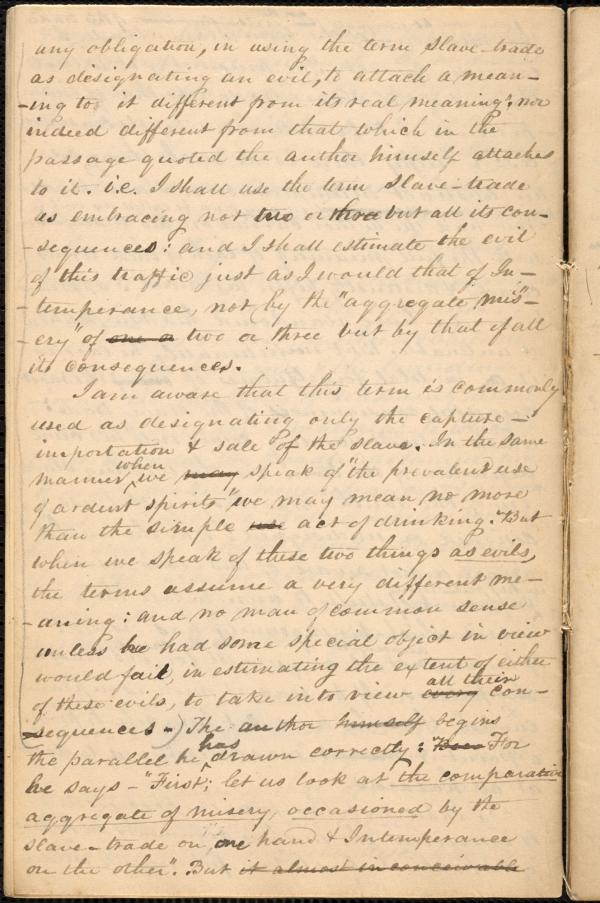 any obligation, in using the term slave-trade
as designating an evil, to attach a mean-
-ing to it different from its real meaning; nor
indeed different from that which in the
passage quoted the author himself attaches
to it. i.e. I shall use the term slave-trade
as embracing not two or three but all its con-
-sequences: and I shall estimate the evil
of this traffic just as I would that of In-
-temperance, not by the "aggregate mis"-
-ery" of one or two or three but by that of all
its consequences.
I am aware that this term is commonly
used as designating only the capture-
importation & sale of the slave. In the same
manner when we may speak of "the prevalent use
of ardent spirits" we may mean no more
than the simple use act of drinking. But
when we speak of these two things as evils,
the terms assume a very different me-
-aning: and no man of common sense
unless he had some special object in view
would fail, in estimating the extent of either
of these evils, to take into view every all their con-
-sequences-) The author himself begins
the parallel he has drawn correctly: For
he says - "First; let us look at the comparative
aggregate of misery, occasioned by the
slave-trade on one hand & Intemperance
on the other". But it almost inconceivable